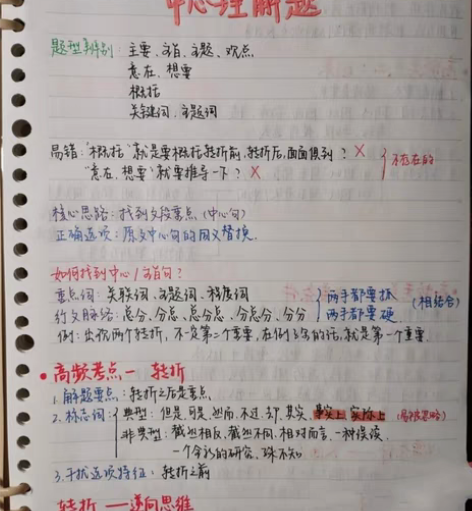 中心理解题
题型判别：主要、旨、主题、观点
意在、想要
概括
关键词、主题词
易错："概括"就是要概括转折前、转折后，面面俱到？ X
"意在、想要"就要推导一下？ X } 不存在的
核心思路：找到文段重点（中心句）
正确选项：原文中心句的同义替换.
如何找到中心/主旨句？
重点词：关联词、主题词、程度词 } 两手都要抓
行文脉络：总分、分总、总分总、分总分、分分 两手都要硬 （相结合）
例：出现两个转折，不一定第二个重要，在例子后的话，就是第一个重要.
• 高频考点一 转折
1. 解题要点：转折之后是重点.
2. 核心词：典型：但是、可是、然而、不过、却、其实、事实上、实际上
非典型：截然相反、截然不同、相对而言、一种误读、
一个全新的研究、殊不知
3. 干扰选项特征：转折之前
转折——逆向思维